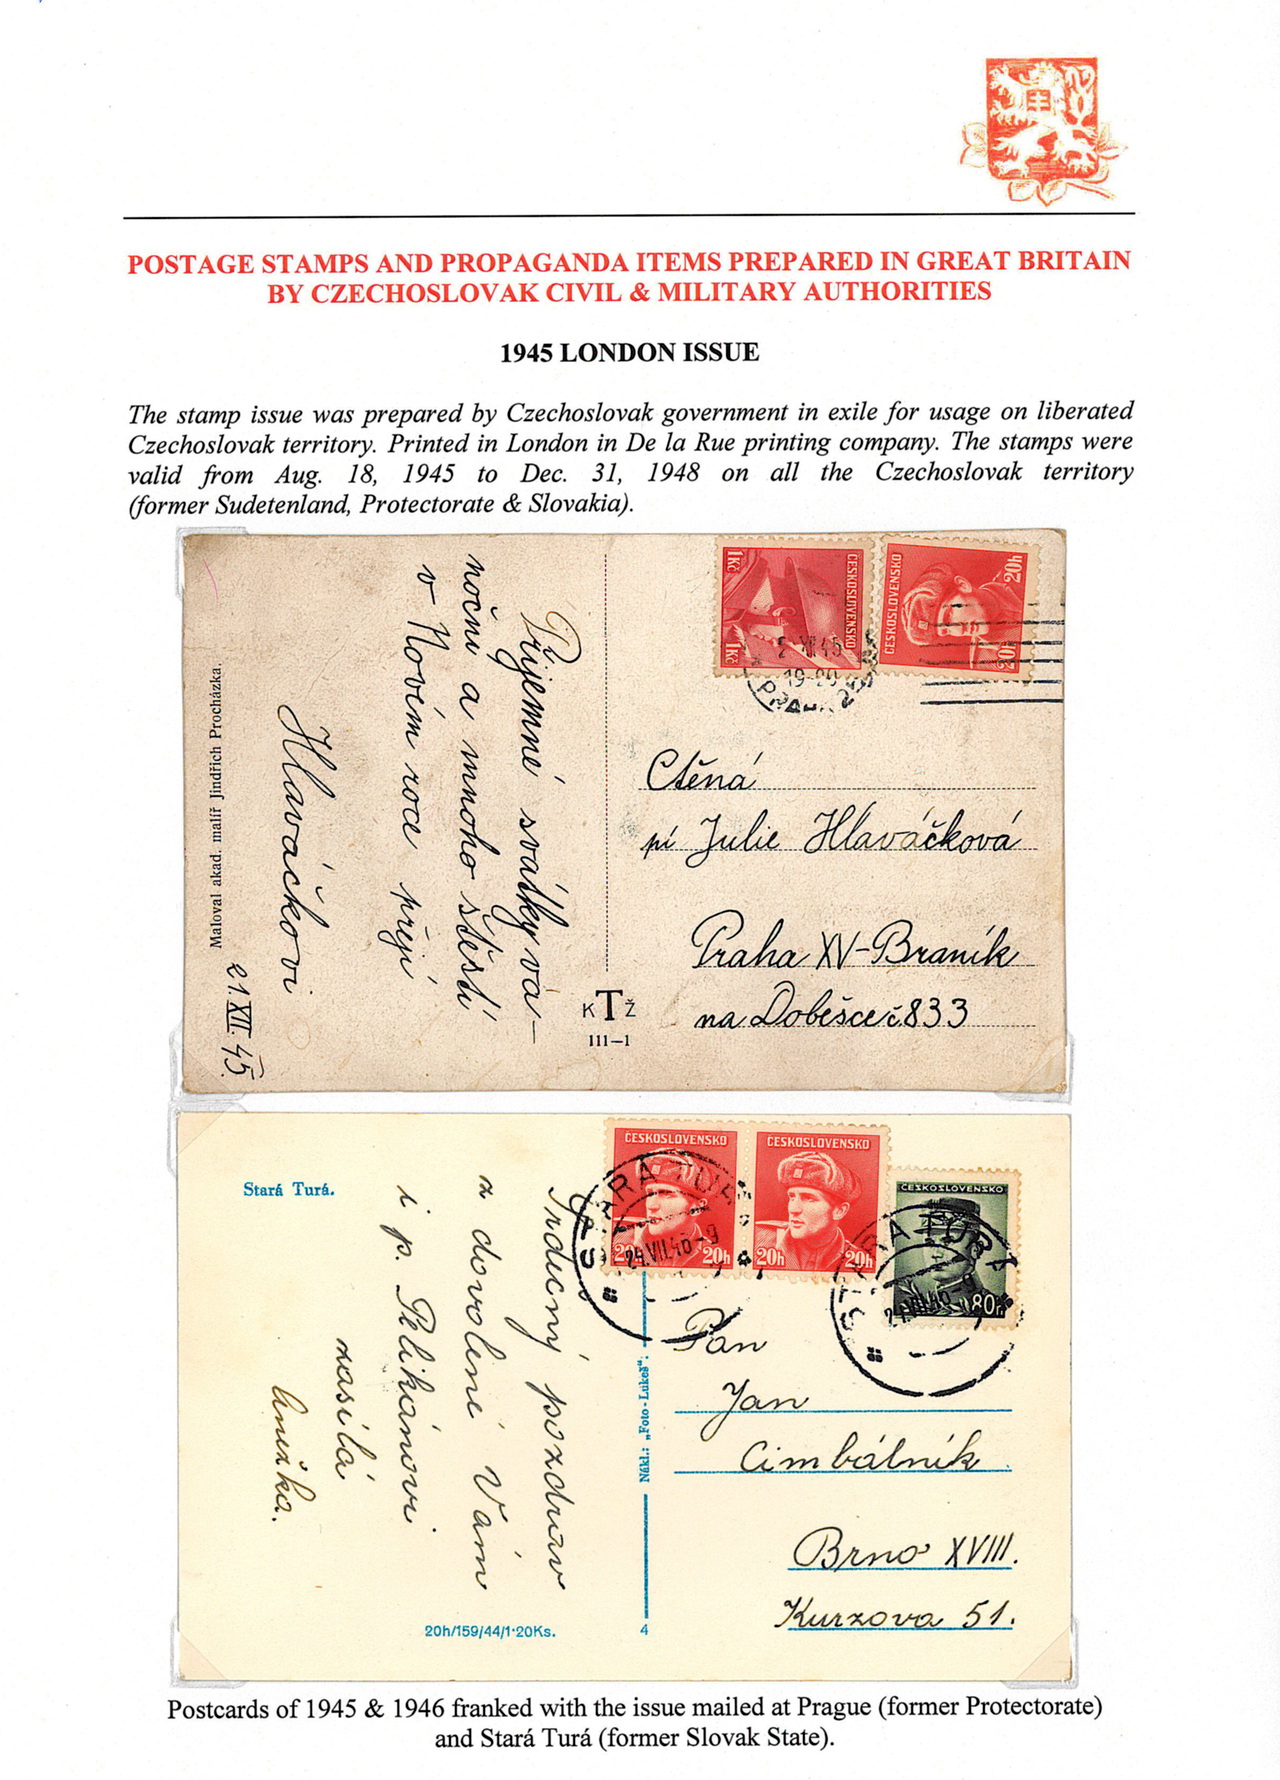 POSTAGE STAMPS AND PROPAGANDA ITEMS PREPARED IN GREAT BRITAIN
BY CZECHOSLOVAK CIVIL & MILITARY AUTHORITIES
1945 LONDON ISSUE
The stamp issue was prepared by Czechoslovak government in exile for usage on liberated
Czechoslovak territory. Printed in London in De la Rue printing company. The stamps were
valid from Aug. 18, 1945 to Dec. 31, 1948 on all the Czechoslovak territory
(former Sudetenland, Protectorate & Slovakia).
Příjemné svátky vá-
noční a mnoho štěstí
v Novém roce přejí
Hlaváčkovi
Maloval akad. malíř Jindřich Procházka.
21.XII.45.
KTŽ
111–1
1Kč
1Kč
ČESKOSLOVENSKO
ČESKOSLOVENSKO
20h
20h
19-20
PRAHA
Ctěná
pí Julie Hlaváčková
Praha XV-Braník
na Dobešce č 833
Stará Turá.
Srdečný pozdrav
z dovolené Vám
i p. Pelikánovi
zasílá
20h/159/44/1·20Ks.
Nákl.: „Foto-Lukeš":
4
ČESKOSLOVENSKO
20h
20h
ČESKOSLOVENSKO
20h
20h
ČESKOSLOVENSKO
80h
STARÁ TURÁ
24.VII.46-9
STARÁ TURÁ
Pan
Jan
Cimbálník
Brno XVIII.
Kurzova 51.
Postcards of 1945 & 1946 franked with the issue mailed at Prague (former Protectorate)
and Stará Turá (former Slovak State).